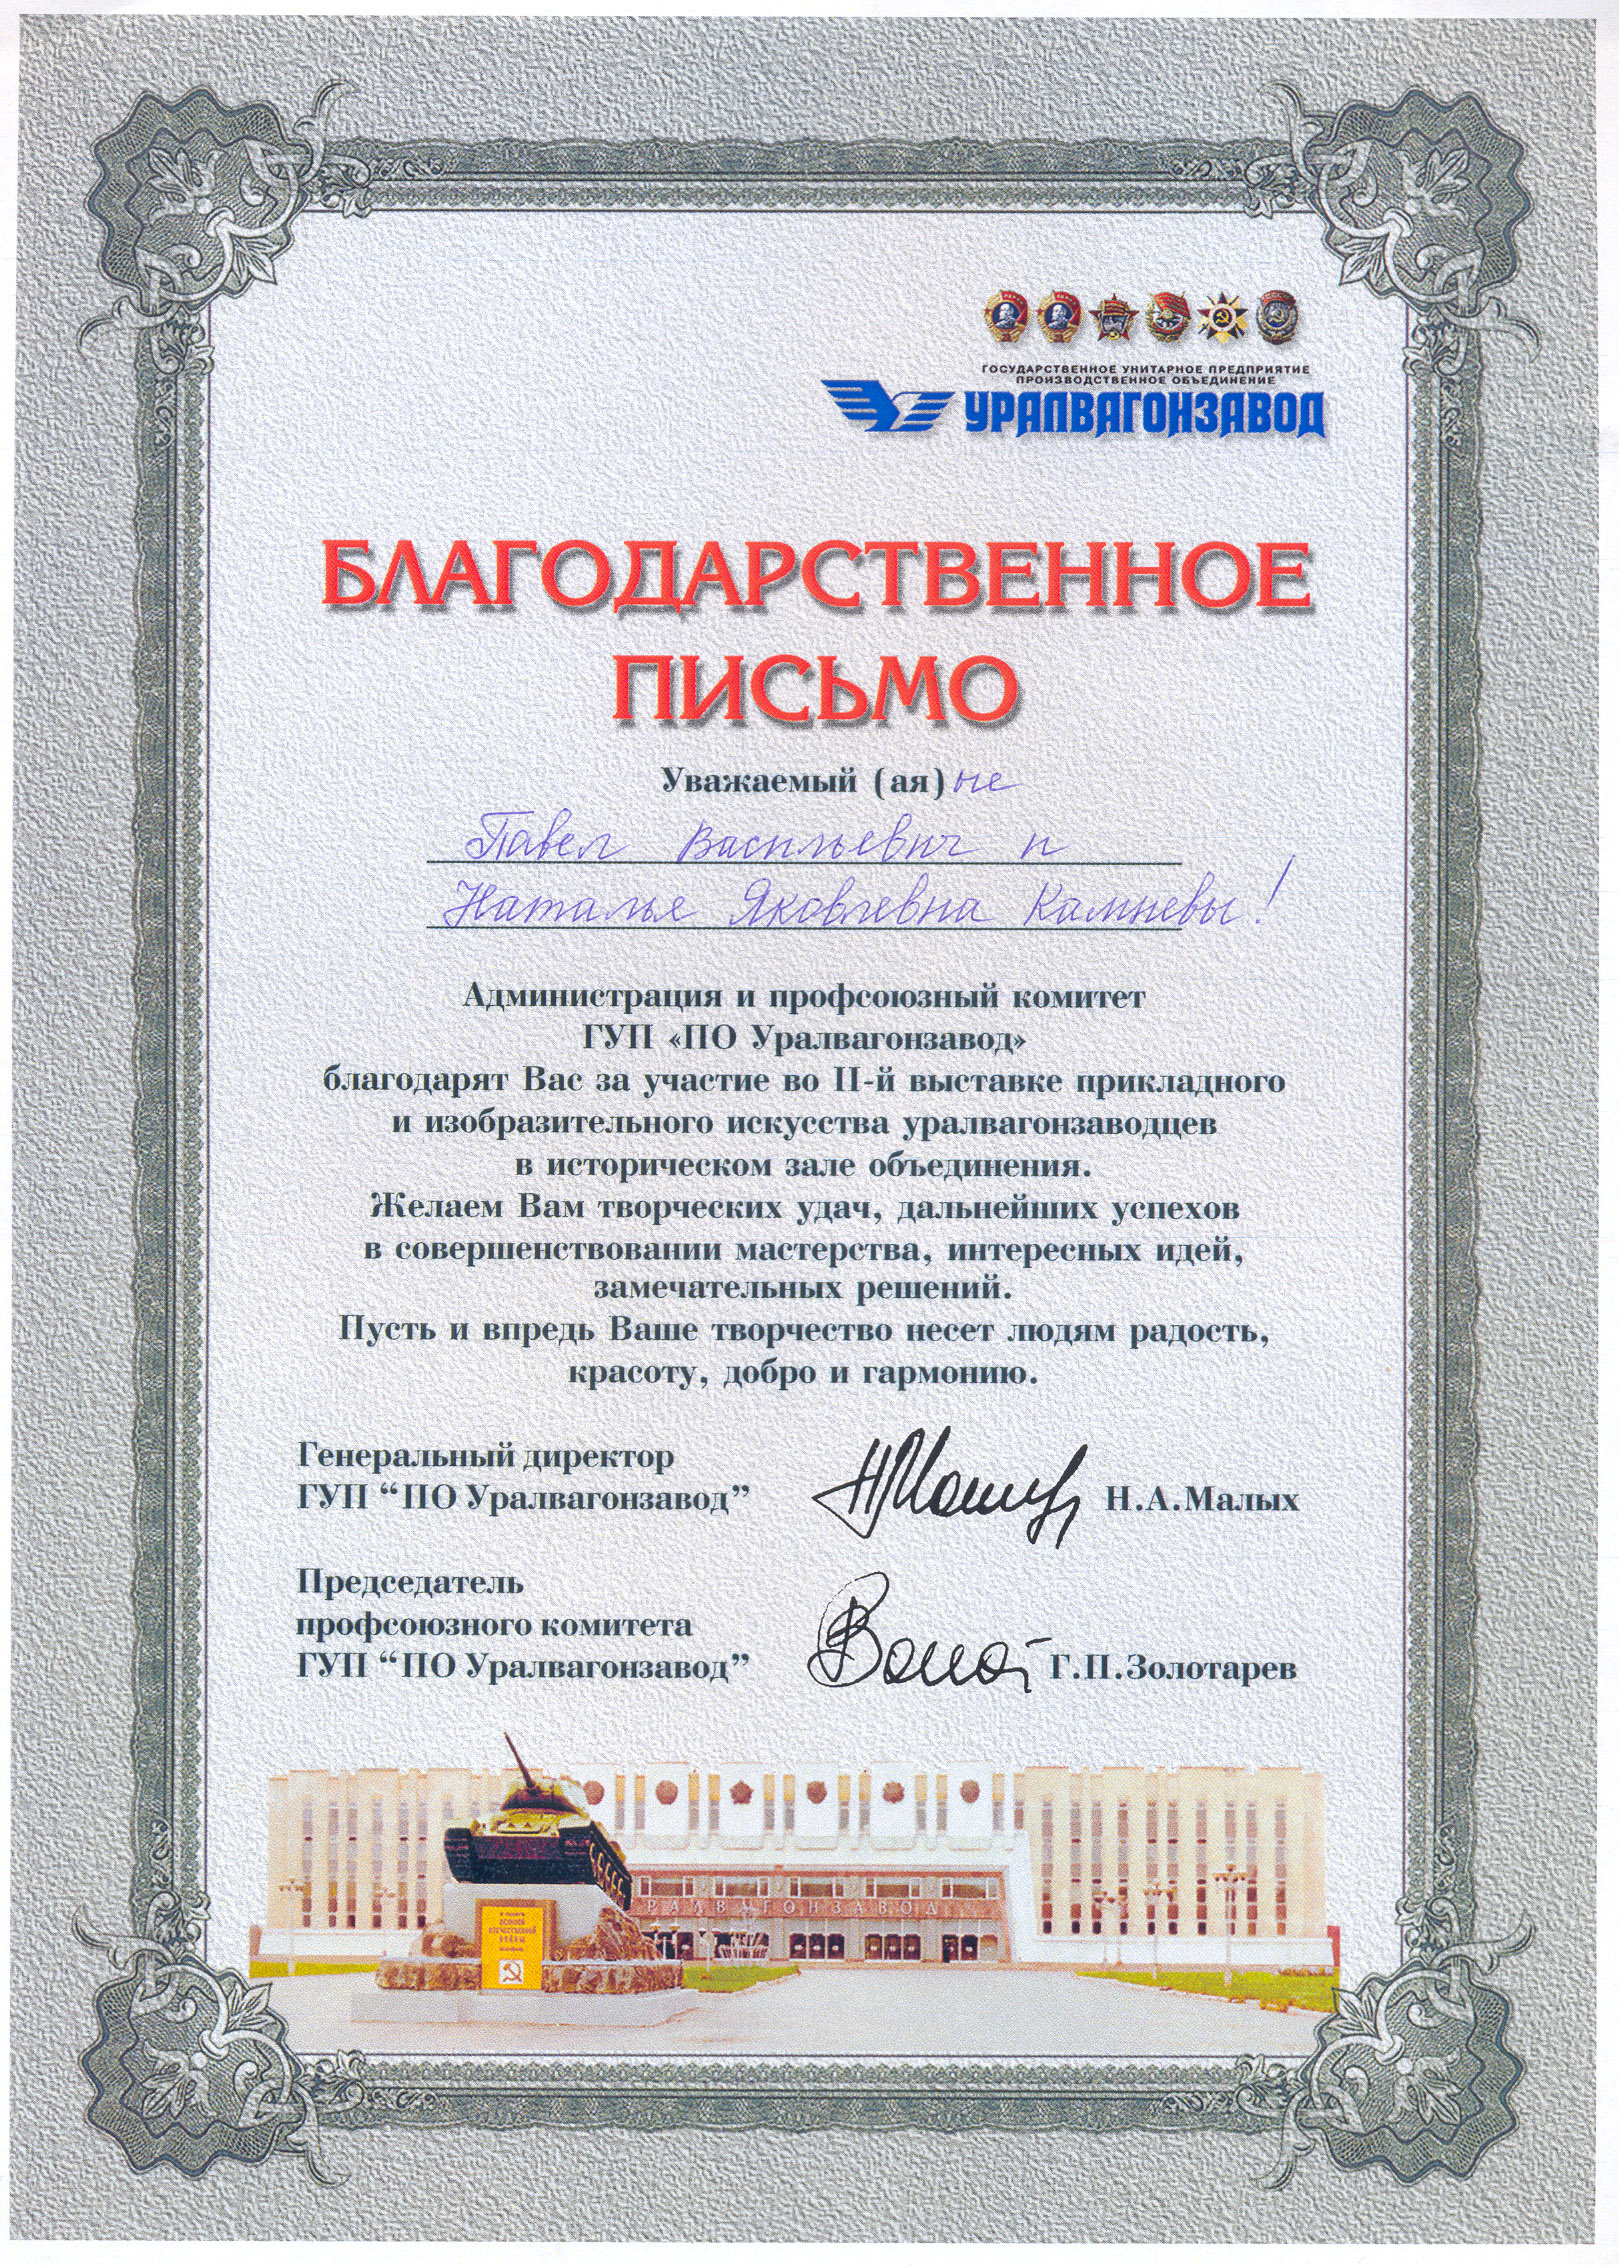 ГОСУДАРСТВЕННОЕ УНИТАРНОЕ ПРЕДПРИЯТИЕ
ПРОИЗВОДСТВЕННОЕ ОБЪЕДИНЕНИЕ
УРАЛВАГОНЗАВОД
БЛАГОДАРСТВЕННОЕ
ПИСЬМО
Уважаемый (ая) ые
Павел Васильевич и
Наталья Яковлевна Камневы!
Администрация и профсоюзный комитет
ГУП «ПО Уралвагонзавод»
благодарят Вас за участие во II-й выставке прикладного
и изобразительного искусства уралвагонзаводцев
в историческом зале объединения.
Желаем Вам творческих удач, дальнейших успехов
в совершенствовании мастерства, интересных идей,
замечательных решений.
Пусть и впредь Ваше творчество несет людям радость,
красоту, добро и гармонию.
Генеральный директор
ГУП “ПО Уралвагонзавод” Н.А.Малых
Председатель
профсоюзного комитета
ГУП “ПО Уралвагонзавод” Г.П.Золотарев
РАЛВАГОНЗАВОД
ВЕЛИКОЙ
ОТЕЧЕСТВЕННОЙ
ВОЙНЫ